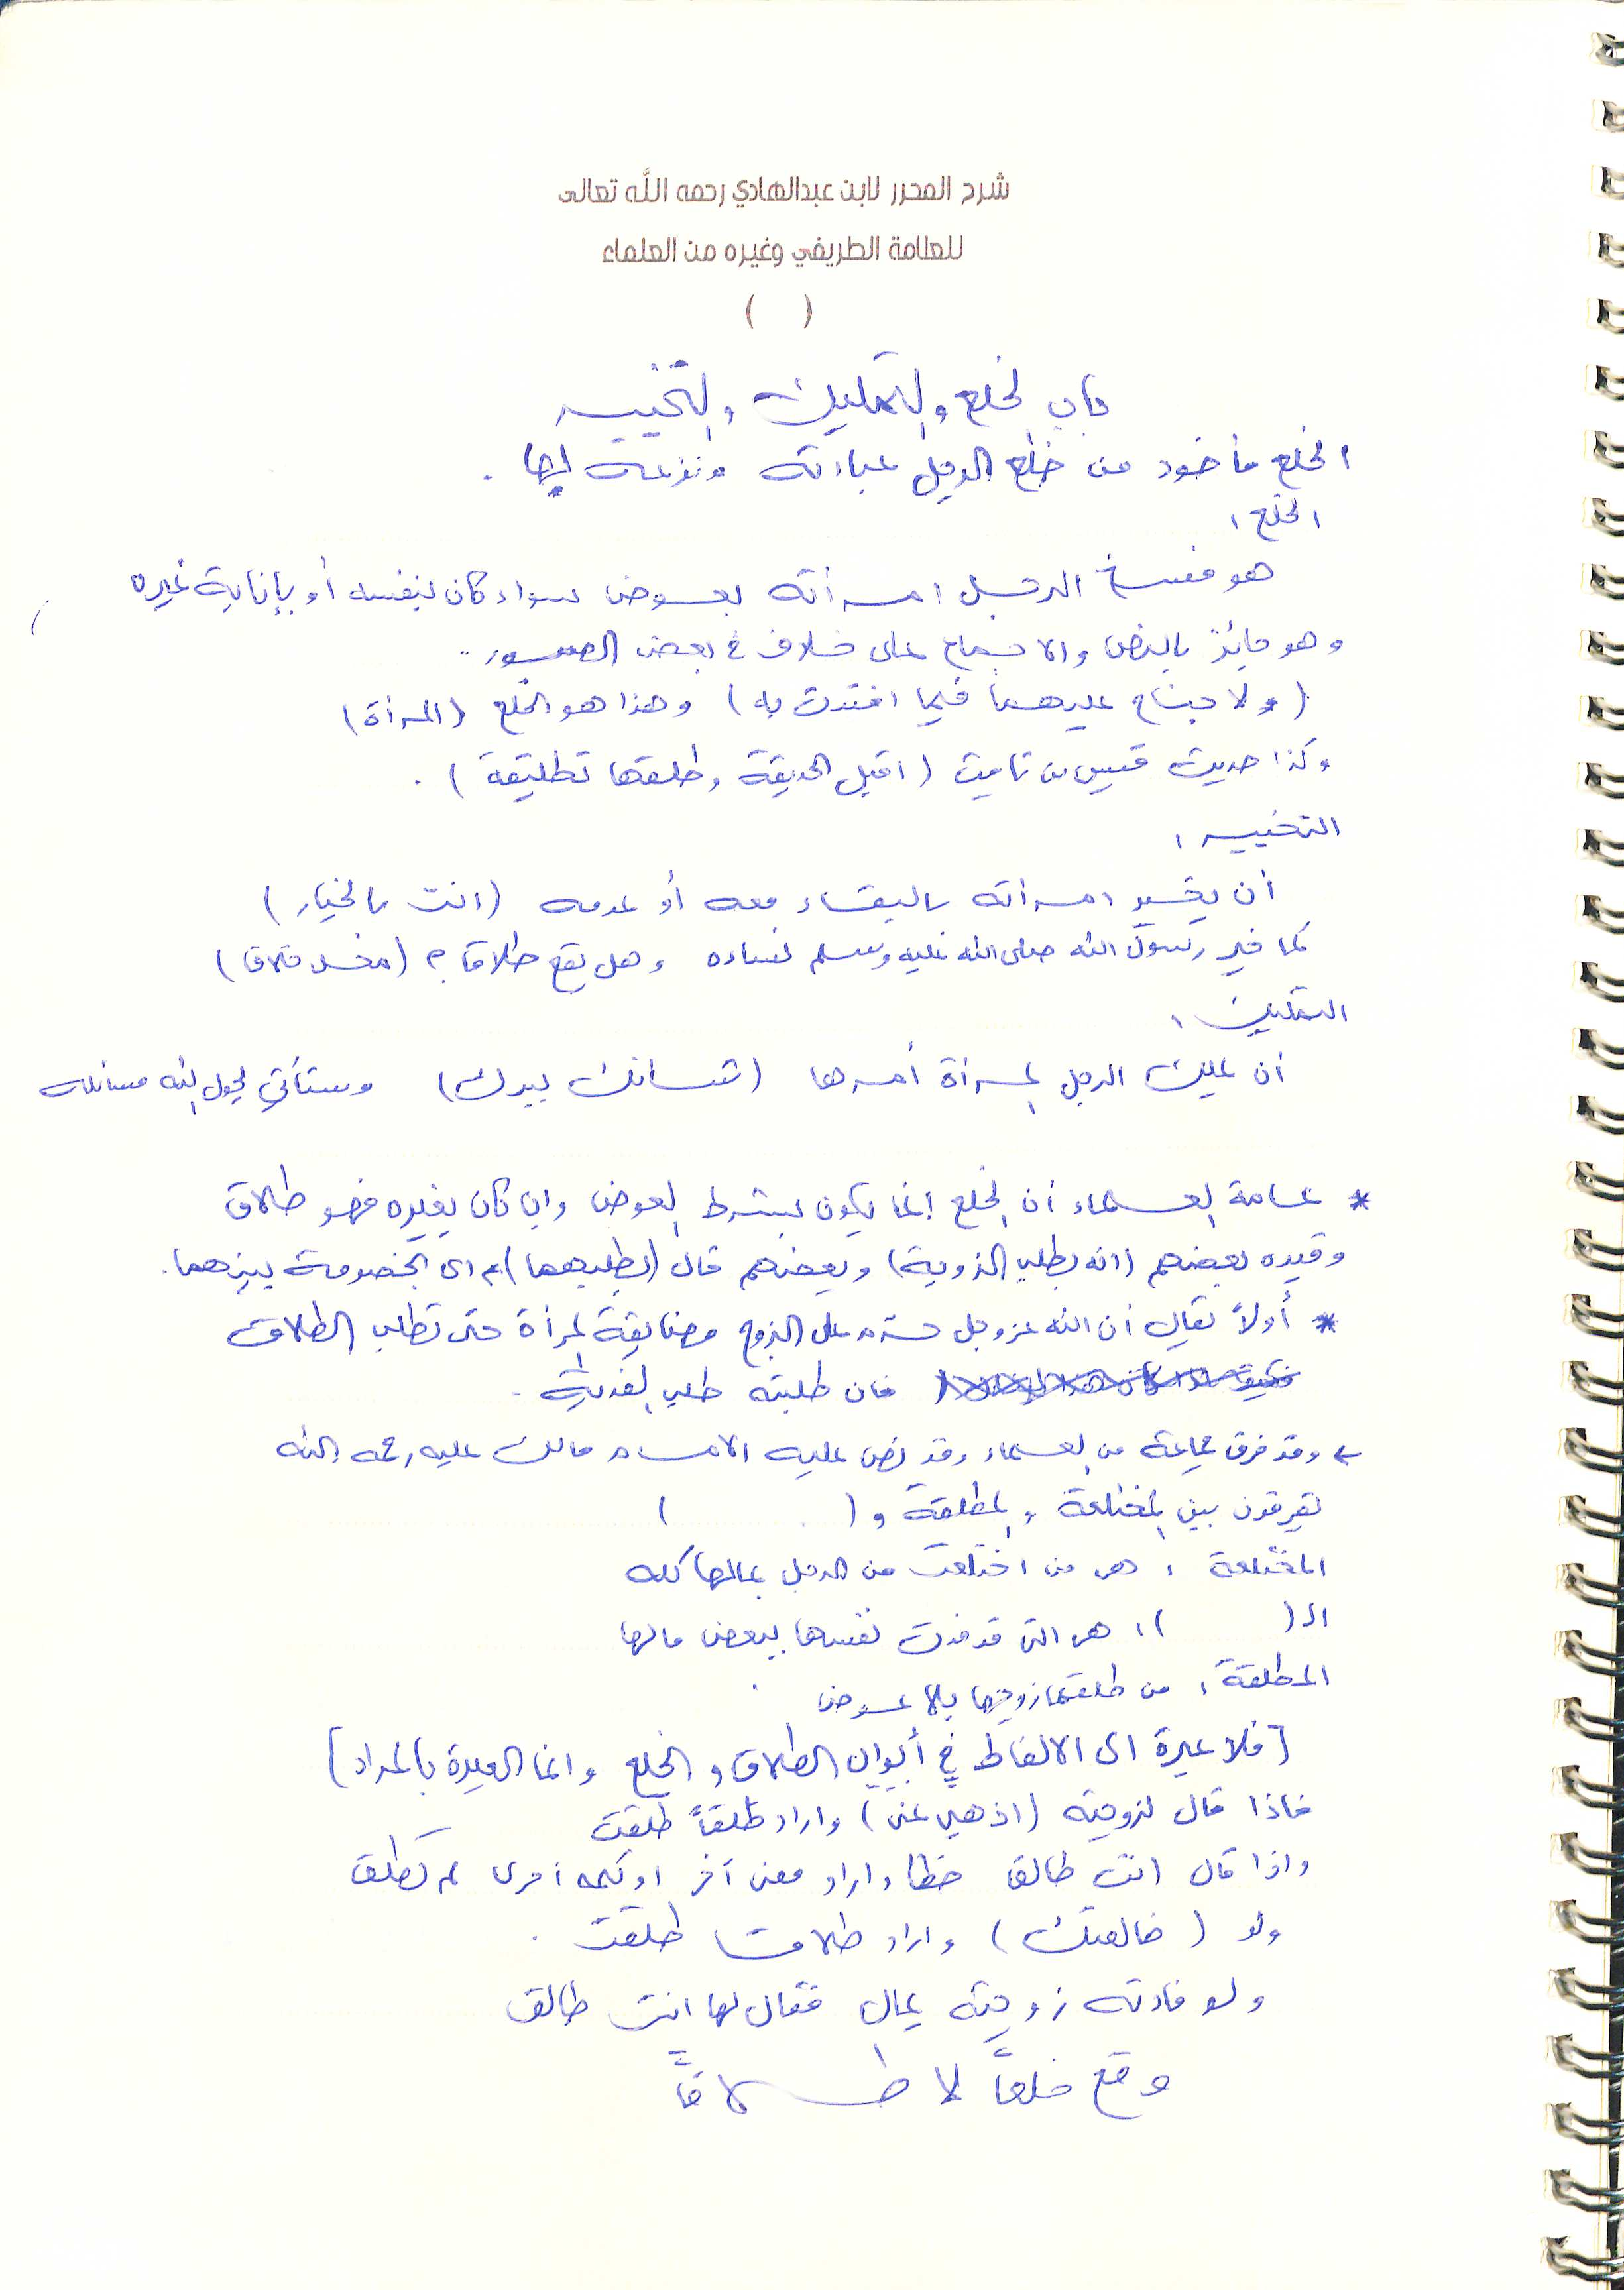 شرح المحرر لابن عبدالهادي رحمه الله تعالى
للعلامة الطريفي وغيره من العلماء
( )
باب الخلع والتمليك والتخيير
الخلع مأخوذ من خلع الرجل عباءته ونزعه لها .
الخلع :
هو فسخ الرجل امرأته بعوض سواء كان بنفسه أو بإنابة غيره
وهو جائز بالنص والاجماع على خلاف في بعض الصور ..
( ولا جناح عليهما فيما افتدت به ) وهذا هو الخلع ( المرأة )
وكذا حديث قيس بن ثابت ( اقبل الحديقة وطلقها تطليقة ) .
التخيير :
أن يخير امرأته بالبقاء معه أو عدمه ( انت بالخيار )
كما خير رسول الله صلى الله عليه وسلم نساءه وهل يقع طلاقا ؟ ( محل خلاف )
التمليك :
أن يملك الرجل المرأة أمرها ( شأنك بيدك ) وستأتي بحول الله مسائله
* عامة العلماء أن الخلع إنما يكون بشرط العوض وإن كان بغيره فهو طلاق
وقيده بعضهم ( انه بطلب الزوجة ) وبعضهم قال ( بطلبهما ) اى الخصومة بينهما .
* أولاً نقال أن الله عز وجل حرم على الزوج مضايقة المرأة حتى تطلب الطلاق
فان طلبته طلب الفدية .
وقد فرق جماعة من العلماء وقد نص عليه الامام مالك عليه رحمه الله
يفرقون بين المختلعة والمطلقة و ( )
المختلعة : هى من اختلعت من الرجل بمالها كله
الـ ( ) : هى التى قد فدت نفسها ببعض مالها
المطلقة : من طلقها زوجها بلا عوض
[ فلا عبرة الى الالفاظ في أبواب الطلاق و الخلع وانما العبرة بالمراد ]
فاذا قال لزوجته ( اذهبي عني ) واراد طلقةً طلقت
واذا قال انت طالق خطا واراد معنى آخر او كلمه اخرى لم تطلق
ولو ( خالعتك ) واراد طلاقا طلقت .
ولو فادته زوجته بمال فقال لها انت طالق
وقع خلعاً لا طلاقاً